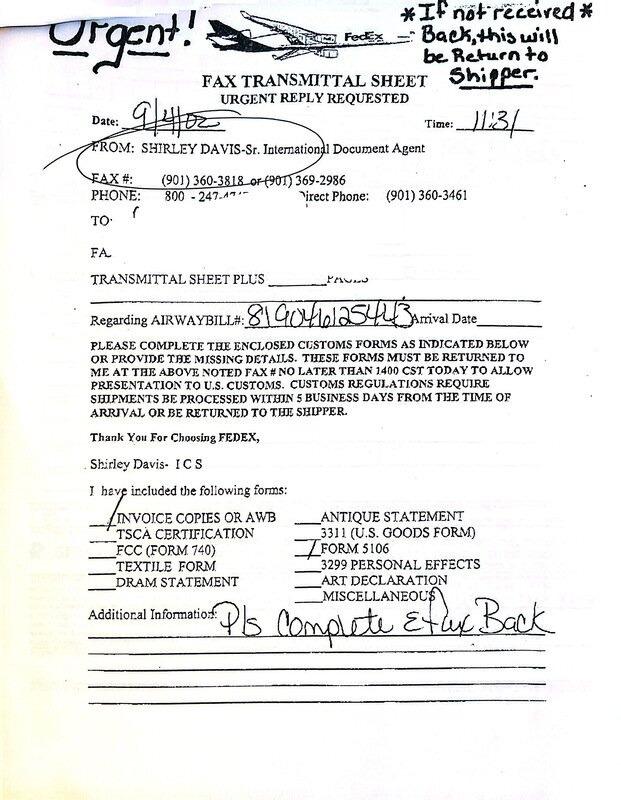 Urgent!
* If not received *
Back, this will
be Return to
Shipper.
FedEx
FAX TRANSMITTAL SHEET
URGENT REPLY REQUESTED
Date: 9/4/02 Time: 11:31
FROM: SHIRLEY DAVIS-Sr. International Document Agent
FAX #: (901) 360-3818 or (901) 369-2986
PHONE: 800 - 247- Direct Phone: (901) 360-3461
TO
FA
TRANSMITTAL SHEET PLUS PAGES
Regarding AIRWAYBILL#: 819046125443 Arrival Date
PLEASE COMPLETE THE ENCLOSED CUSTOMS FORMS AS INDICATED BELOW
OR PROVIDE THE MISSING DETAILS. THESE FORMS MUST BE RETURNED TO
ME AT THE ABOVE NOTED FAX # NO LATER THAN 1400 CST TODAY TO ALLOW
PRESENTATION TO U.S. CUSTOMS. CUSTOMS REGULATIONS REQUIRE
SHIPMENTS BE PROCESSED WITHIN 5 BUSINESS DAYS FROM THE TIME OF
ARRIVAL OR BE RETURNED TO THE SHIPPER.
Thank You For Choosing FEDEX,
Shirley Davis- I C S
I have included the following forms:
INVOICE COPIES OR AWB ANTIQUE STATEMENT
TSCA CERTIFICATION 3311 (U.S. GOODS FORM)
FCC (FORM 740) FORM 5106
TEXTILE FORM 3299 PERSONAL EFFECTS
DRAM STATEMENT ART DECLARATION
MISCELLANEOUS
Additional Information: Pls Complete & Fax Back